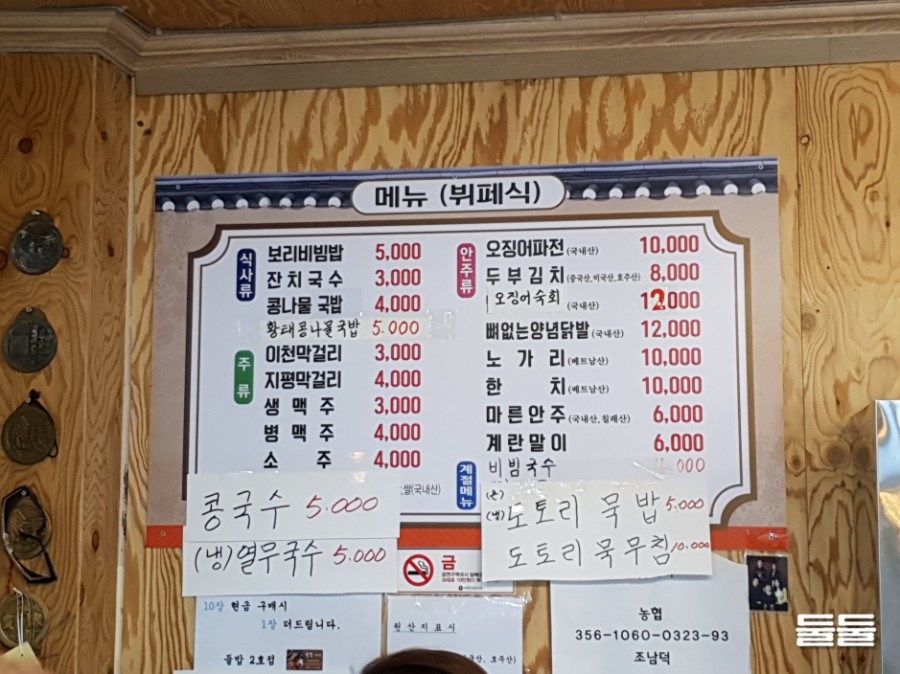 메뉴 (뷔페식)
식사류
보리비빔밥 5,000
잔치국수 3,000
콩나물 국밥 4,000
황태콩나물국밥 5.000
주류
이천막걸리 3,000
지평막걸리 4,000
생맥주 3,000
병맥주 4,000
소주 4,000
쌀(국내산)
안주류
오징어파전 (국내산) 10,000
두부김치 (중국산,미국산,호주산) 8,000
오징어숙회 (국내산) 12,000
뼈없는양념닭발 (국내산) 12,000
노가리 (베트남산) 10,000
한치 (베트남산) 10,000
마른안주 (국내산,칠레산) 6,000
계란말이 6,000
계절메뉴
비빔국수 000
콩국수 5.000
(냉) 열무국수 5.000
(온)
(냉) 도토리 묵 밥 5.000
도토리 묵 무침 10.000
금
10장 현금 구매시
1장 더드립니다.
돌밥 2호점
원산지표시
호주산)
농협
356-1060-0323-93
조남덕
둘둘